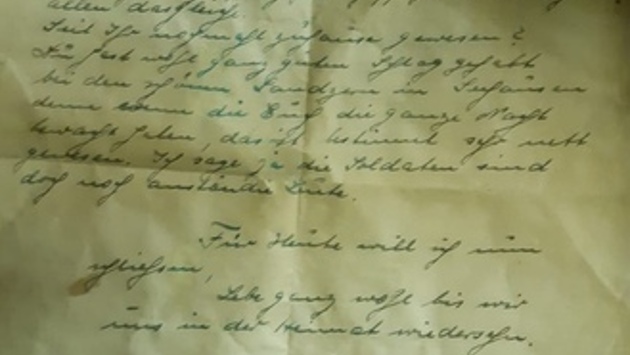 allen dasgleich.
Seid Ihr nochmahl zuhause gewesen?
Du hast wohl ganz guten Schlag gehabt
bei den schönen Landsern in Seehausen
denn wenn die Euch die ganze Nacht
bewacht haben, das ist bestimmt sehr nett
gewesen. Ich sage ja die Soldaten sind
doch noch anständie Leute.
Für Heute will ich nun
schliehsen,
Lebe ganz wohl bis wir
uns in der Heimat wiedersehn.